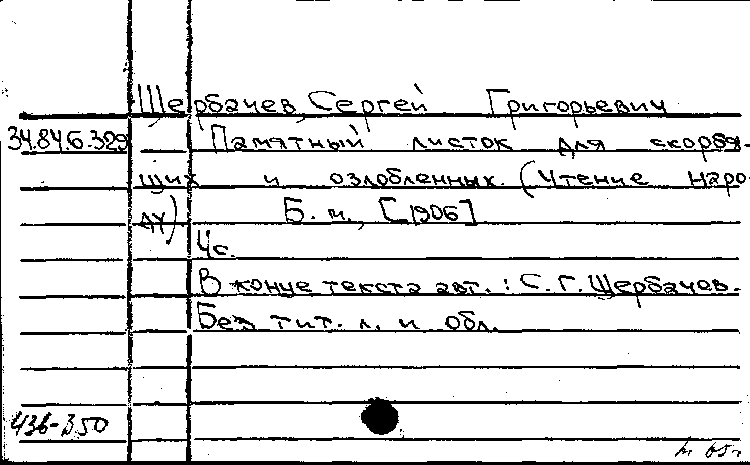 Щербачев, Сергей Григорьевич
34.84.6.329 Памятный листок для скорбя-
щих и озлобленных. (Чтение наро-
ду) Б. м., [1906]
4с.
В конце текста авт.: С. Г. Щербачев.
Без тит. л. и обл.
436-350